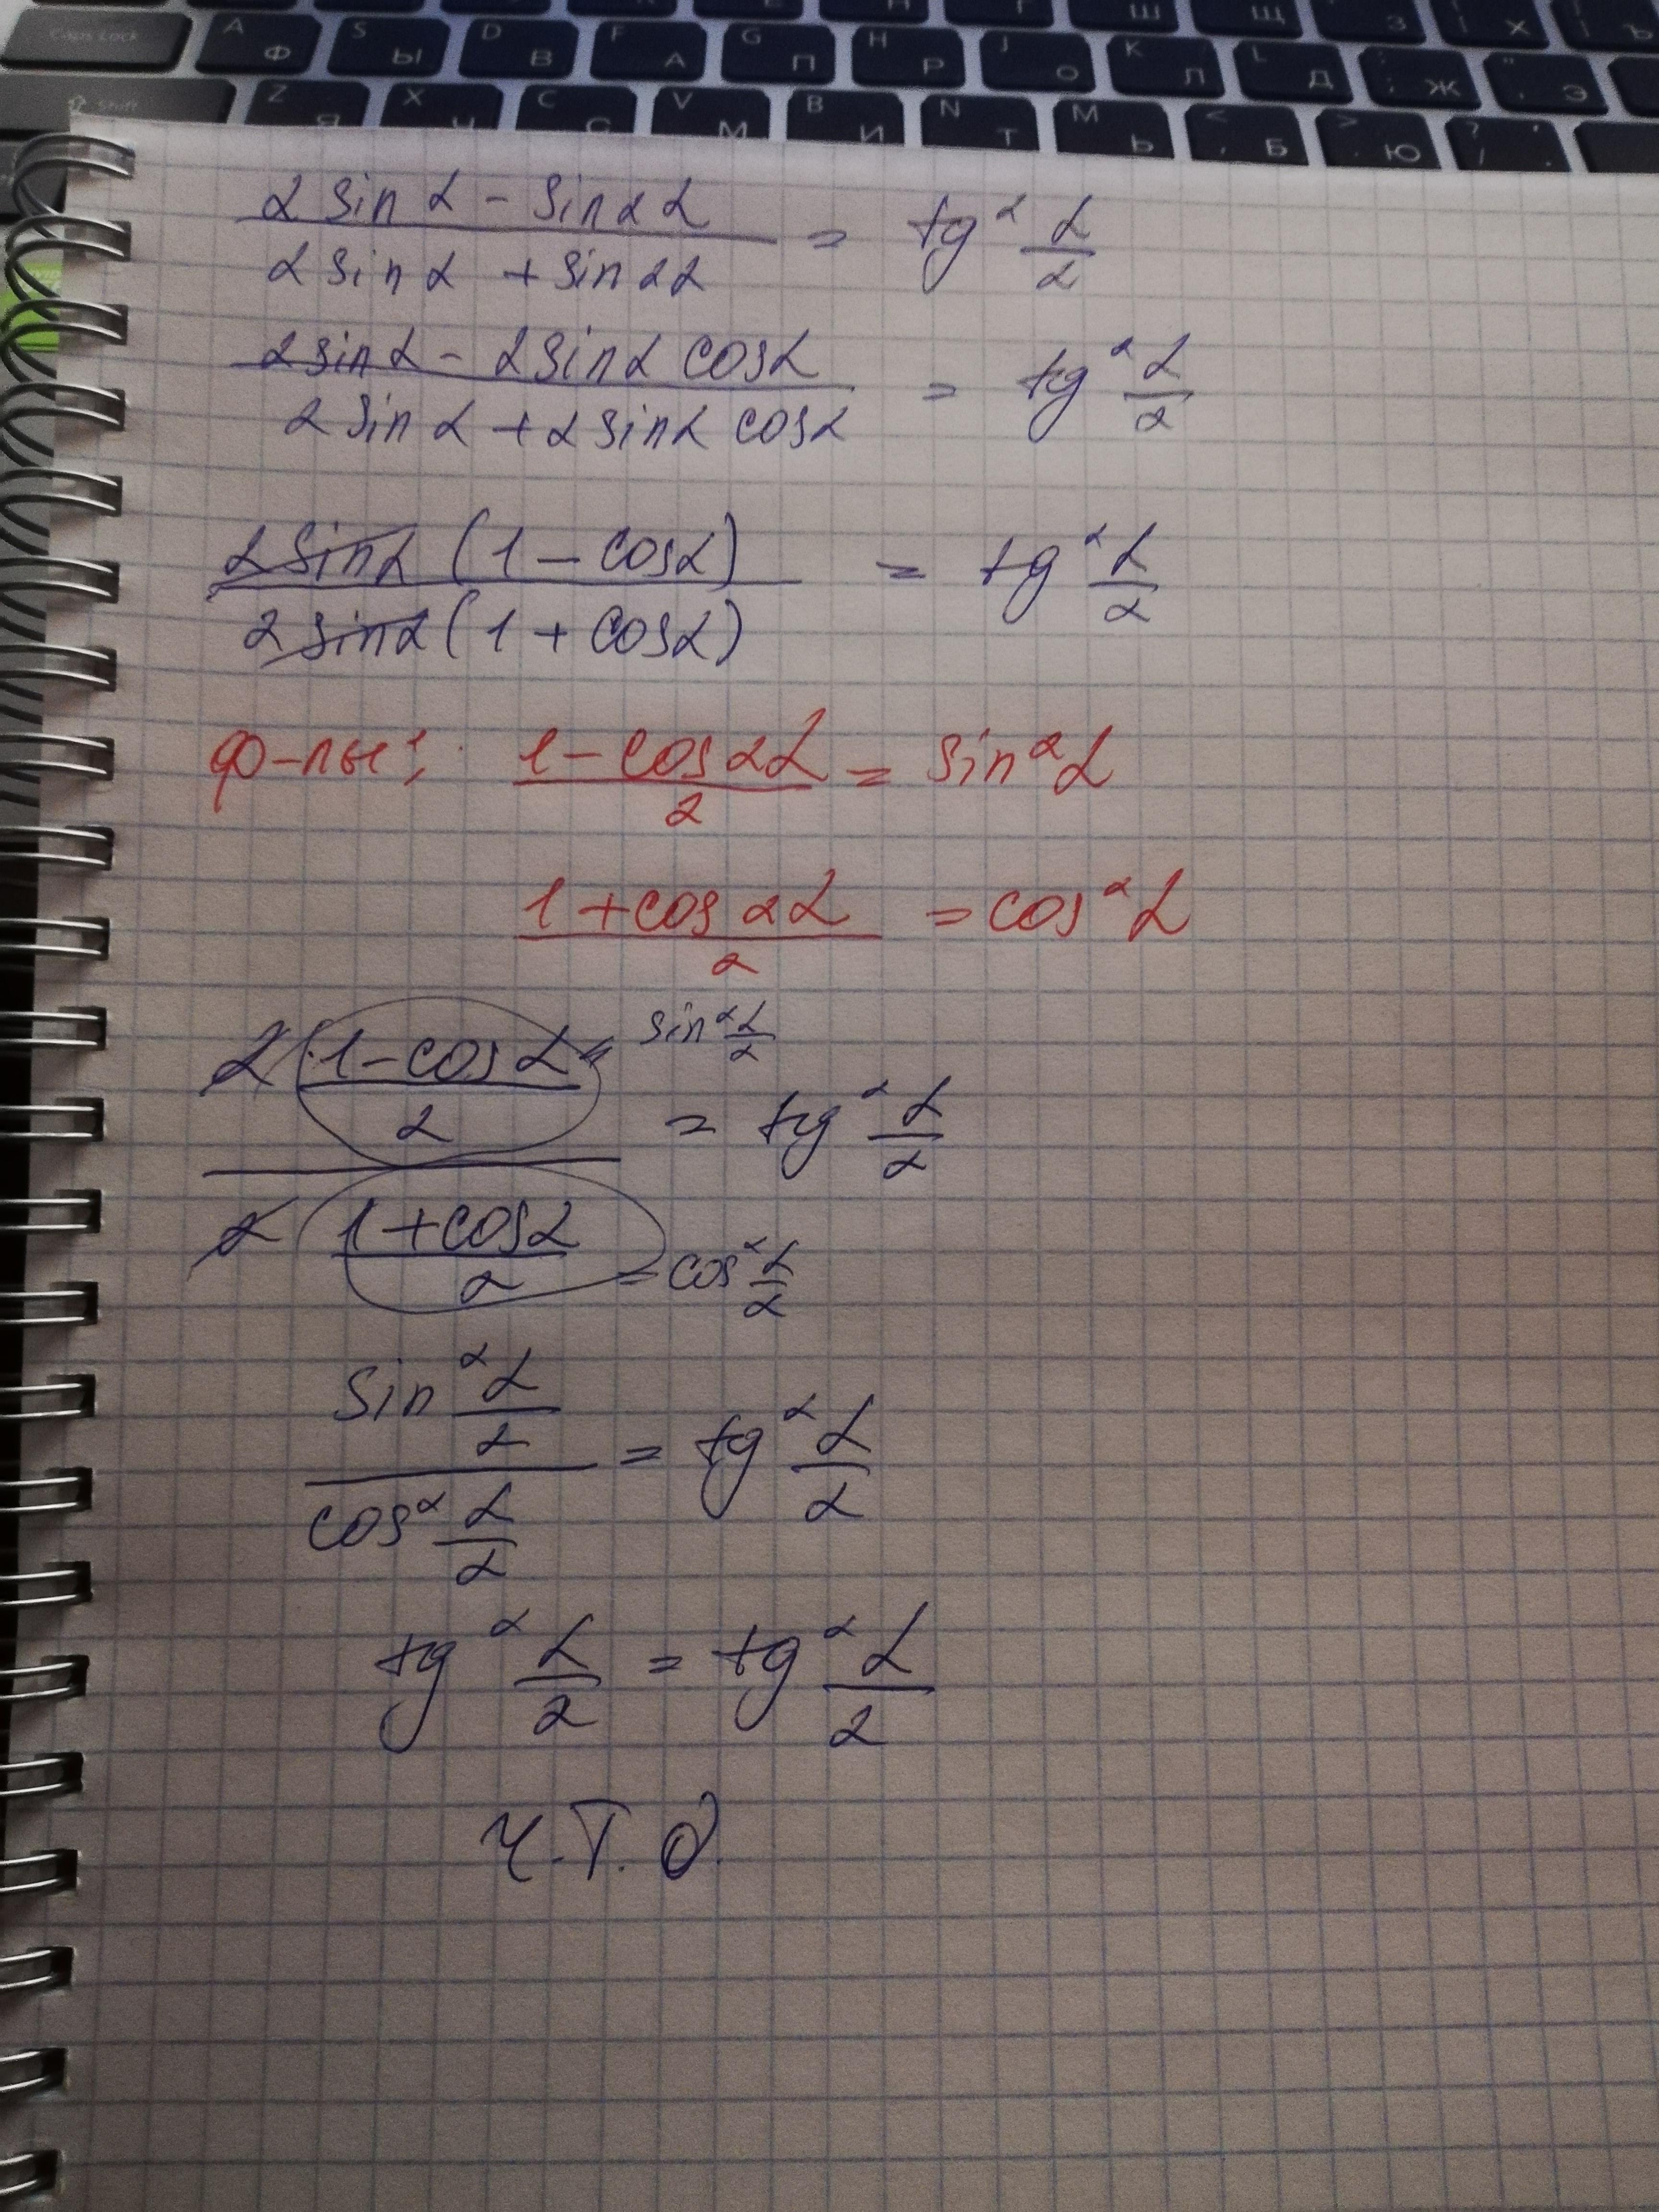 Caps Lock A Ф S Ы D В F А G П H Р J О K Л L Д ; Ж " Э
Shift Z Я X Ч C С V М B И N Т M Ь < , Б > . Ю ? /
(2 sin α − sin 2α) / (2 sin α + sin 2α) = tg² α/2
(2 sin α − 2 sin α cos α) / (2 sin α + 2 sin α cos α) = tg² α/2
2 sin α (1 − cos α) / 2 sin α (1 + cos α) = tg² α/2
ф-лы: (1 − cos 2α) / 2 = sin² α
(1 + cos 2α) / 2 = cos² α
2 (1 − cos α) / 2 = sin² α/2
= tg² α/2
2 (1 + cos α) / 2 = cos² α/2
(sin² α/2) / (cos² α/2) = tg² α/2
tg² α/2 = tg² α/2
ч.т.д.